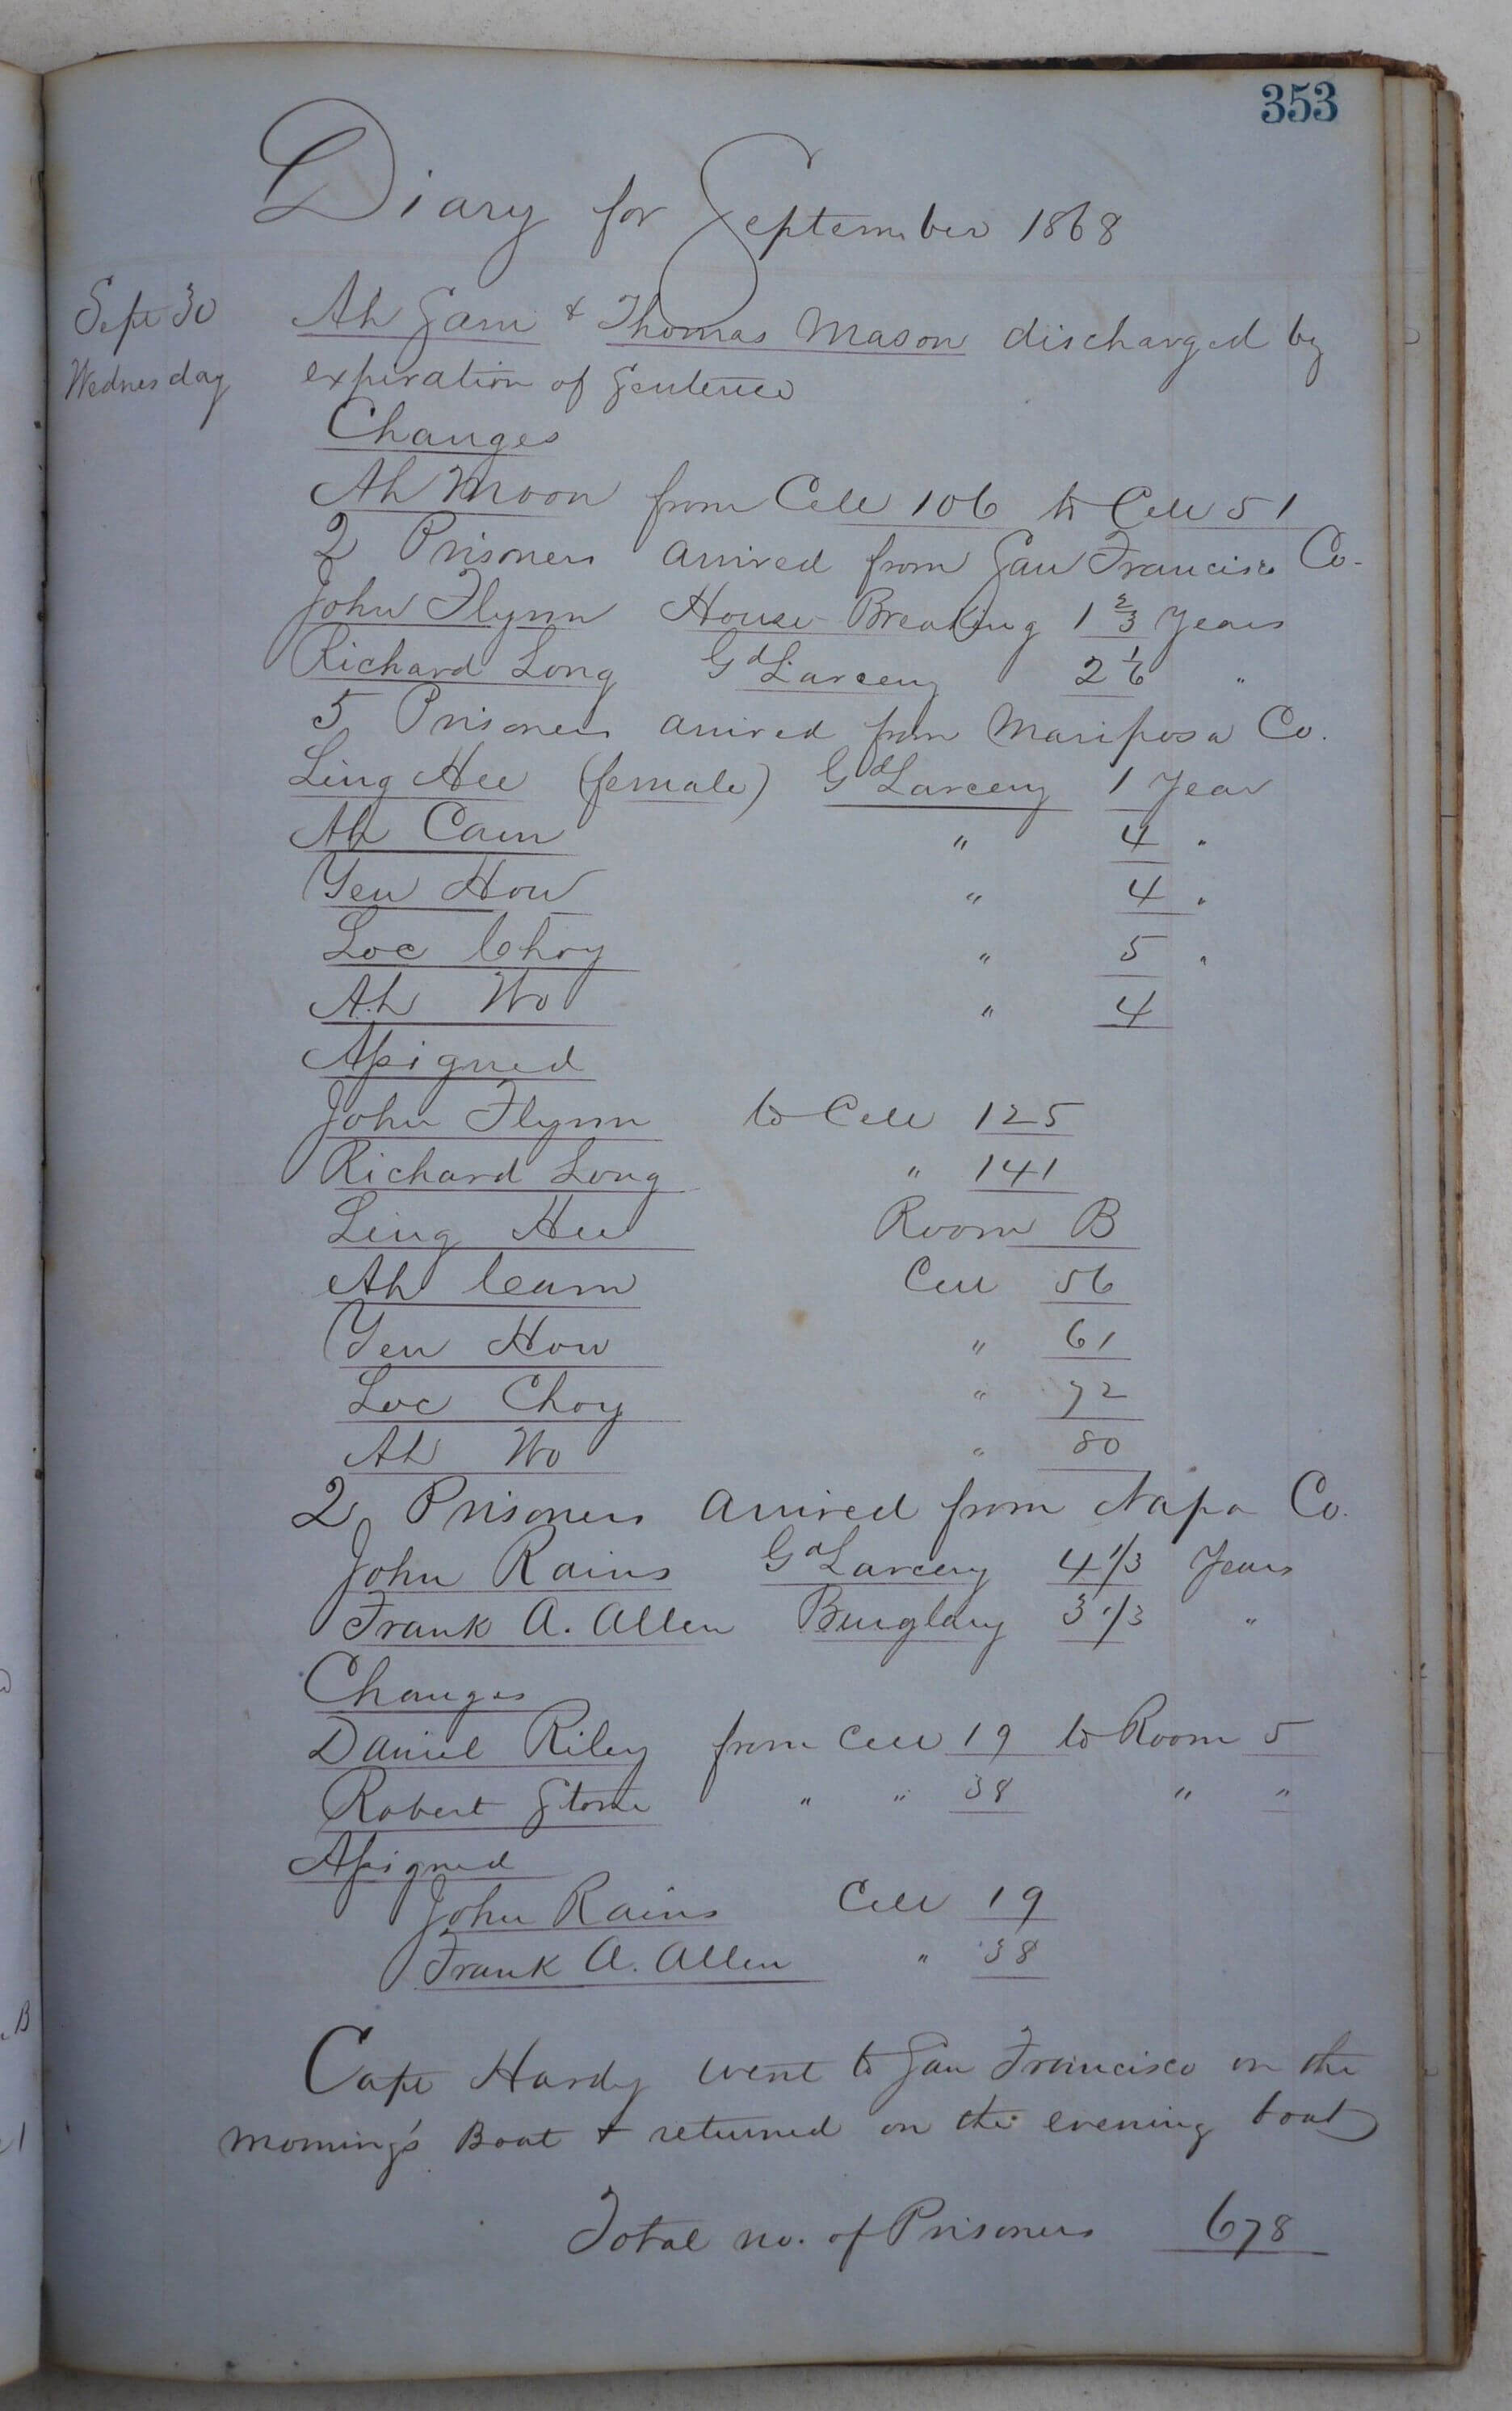 353
Diary for September 1868
Sept 30 Ah Sam & Thomas Mason discharged by
Wednesday expiration of Sentence
Changes
Ah Moon from Cell 106 to Cell 51
2 Prisoners arrived from San Francisco Co.
John Flynn House Breaking 1 2/3 Years
Richard Long Gd Larceny 2 1/6 "
5 Prisoners arrived from Mariposa Co.
Ling Hee (female) Gd Larceny 1 Year
Ah Cam " 4 "
Yeu How " 4 "
Loc Choy " 5 "
Ah Wo " 4
Assigned
John Flynn to Cell 125
Richard Long " 141
Ling Hee Room B
Ah Cam Cell 56
Yeu How " 61
Loc Choy " 72
Ah Wo " 80
2 Prisoners arrived from Napa Co.
John Rains Gd Larceny 4 1/3 Years
Frank A. Allen Burglary 3 1/3 "
Changes
Daniel Riley from Cell 19 to Room 5
Robert Stone " " 38 " "
Assigned
John Rains Cell 19
Frank A. Allen " 38
Capt Hardy went to San Francisco on the
morning's Boat & returned on the evening boat
Total no. of Prisoners 678